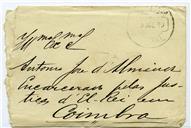 Antonio José d'Almeida
Encarcerado pelas jus-
tiças d'El-Rei em
Coimbra